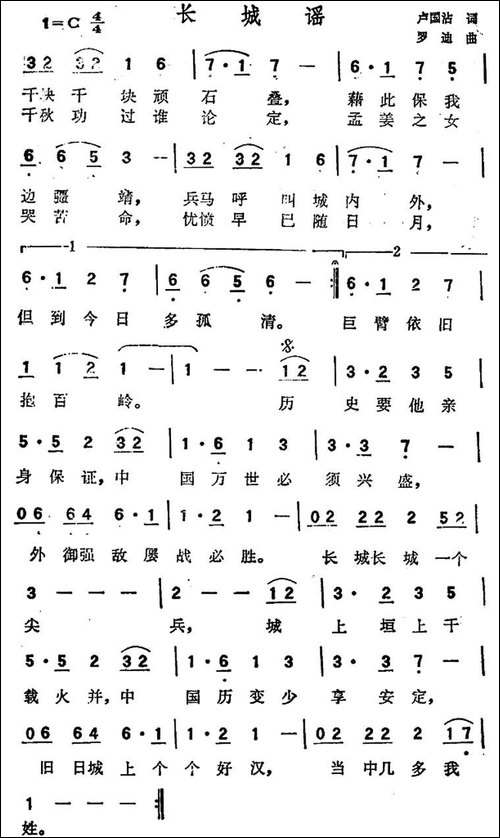 长城谣
1=C 4/4
卢国沾 词
罗迪 曲
32 32 1 6 | 7·1 7 — | 6·1 7 5 |
千块千块顽石叠，藉此保我
千秋功过谁论定，孟姜之女
6 65 3 — | 32 32 1 6 | 7·1 7 — |
边疆靖，兵马呼叫城内外，
哭苦命，忧愤早已随日月，
1 2
6·1 2 7 | 6 65 6 — :|| 6·1 2 7 |
但到今日多孤清。巨臂依旧
1 12 1 — | 1 — — 12 | 3·2 3 5 |
抱百岭。历史要他亲
5·5 2 32 | 1·6 1 3 | 3·3 7 — |
身保证，中国万世必须兴盛，
06 64 6·1 | 1·2 1 — | 02 22 2 52 |
外御强敌屡战必胜。长城长城一个
3 — — — | 2 — — 12 | 3·2 3 5 |
尖兵，城上垣上千
5·5 2 32 | 1·6 1 3 | 3·3 7 — |
载火并，中国历变少享安定，
06 64 6·1 | 1·2 1 — | 02 22 2 17 |
旧日城上个个好汉，当中几多我
1 — — — ||
姓。